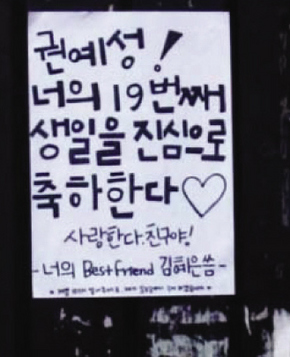 권예성!
너의 19번째
생일을 진심으로
축하한다♡
사랑한다.친구야!
-너의 Bestfriend 김혜은씀-